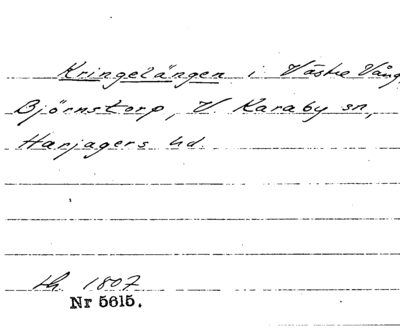 Kringelängen i Västre Vång
Björnstorp, V. Karaby sn,
Harjagers hd.
lh. 1807
Nr 5615.